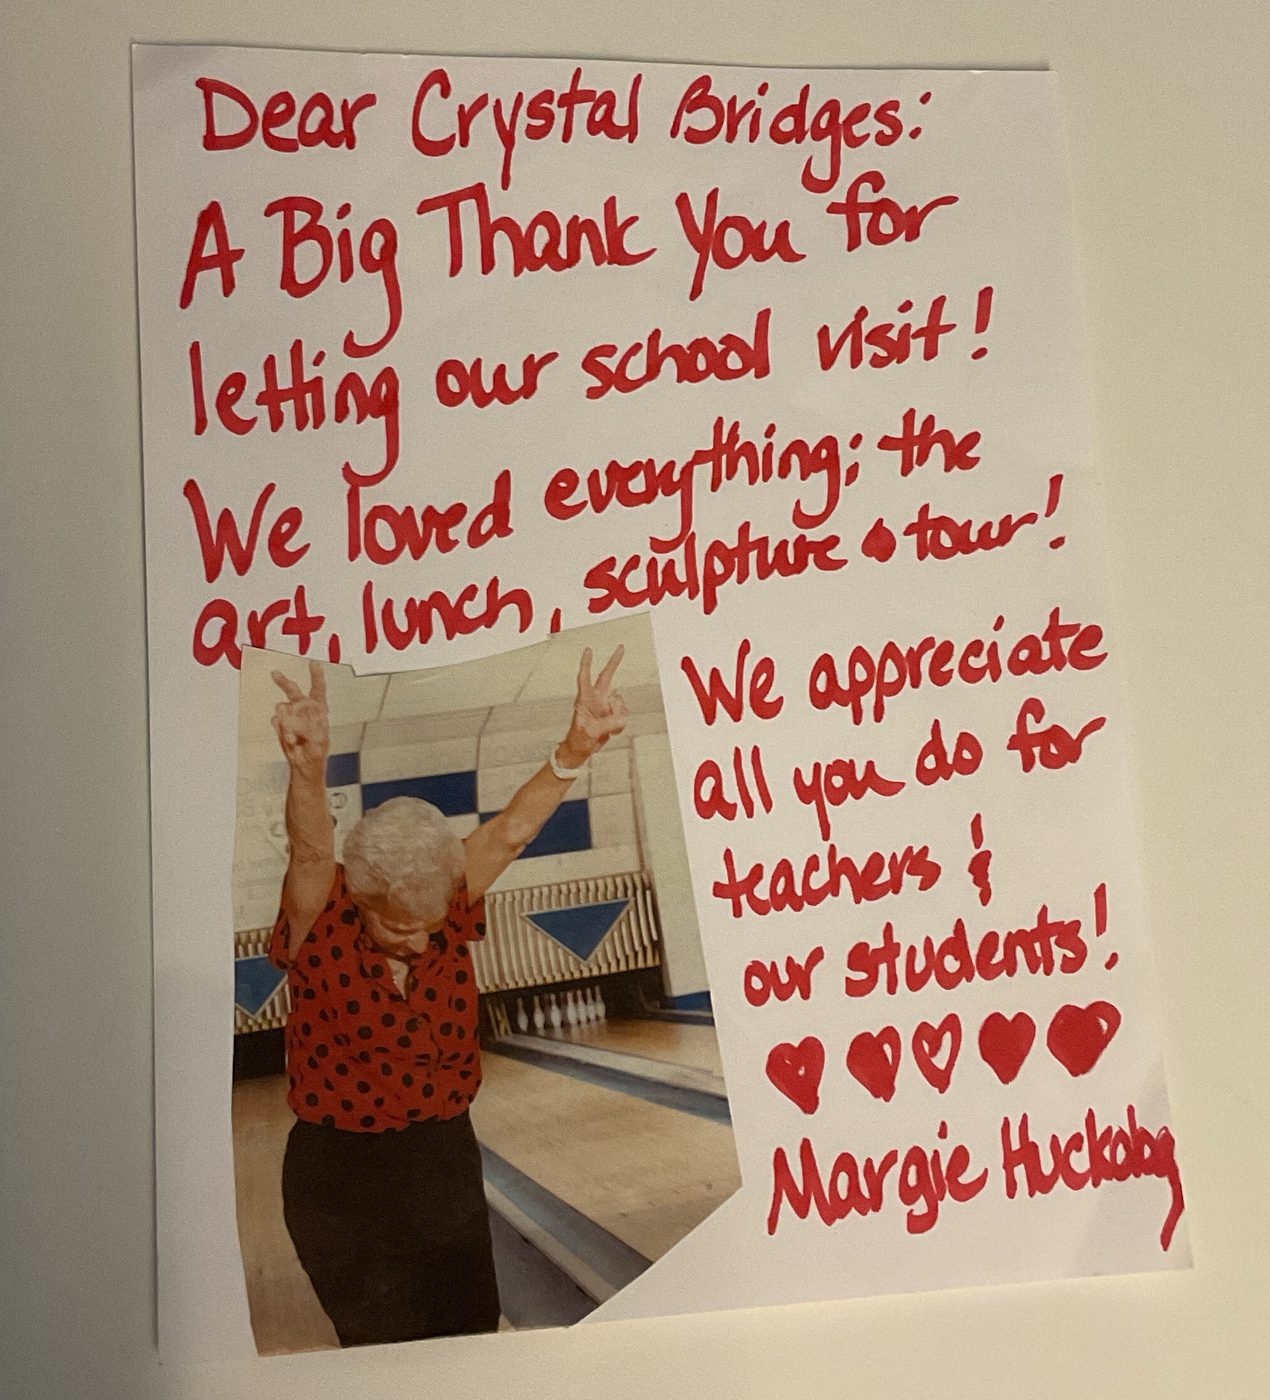 Dear Crystal Bridges:
A Big Thank You for
letting our school visit!
We loved everything; the
art, lunch, sculpture & tour!
We appreciate
all you do for
teachers &
our students!
Margie Huckabay